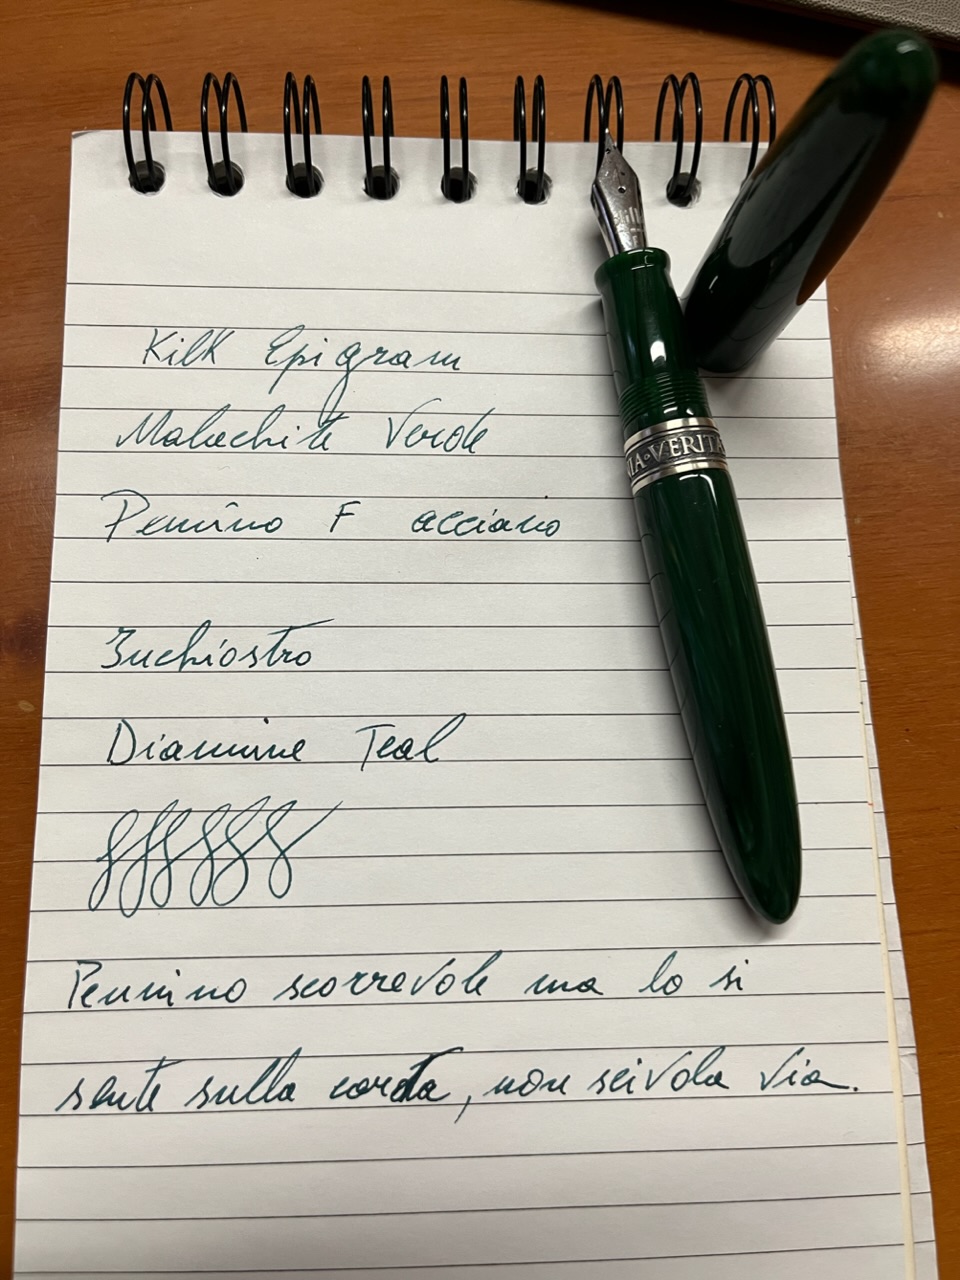 Kilk Epigram
Malachite Verde
Pennino F acciaio
Inchiostro
Diamine Teal
Pennino scorrevole ma lo si
sente sulla carta, non scivola via.
VERITA